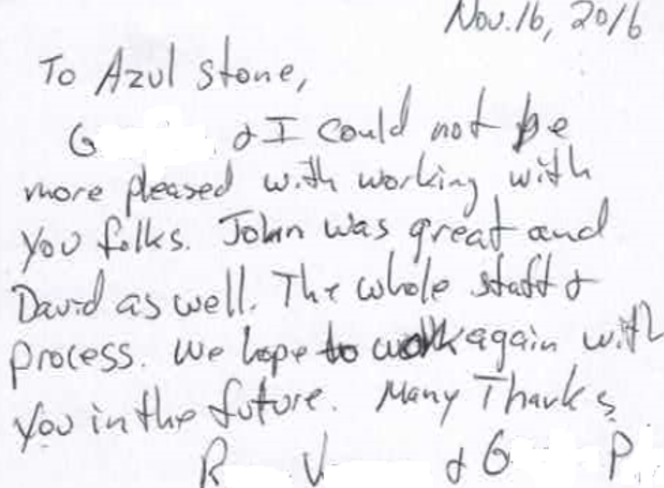 Nov. 16, 2016
To Azul Stone,
G & I could not be
more pleased with working with
you folks. John was great and
David as well. The whole staff &
process. We hope to work again with
you in the future. Many Thanks
R V & G P